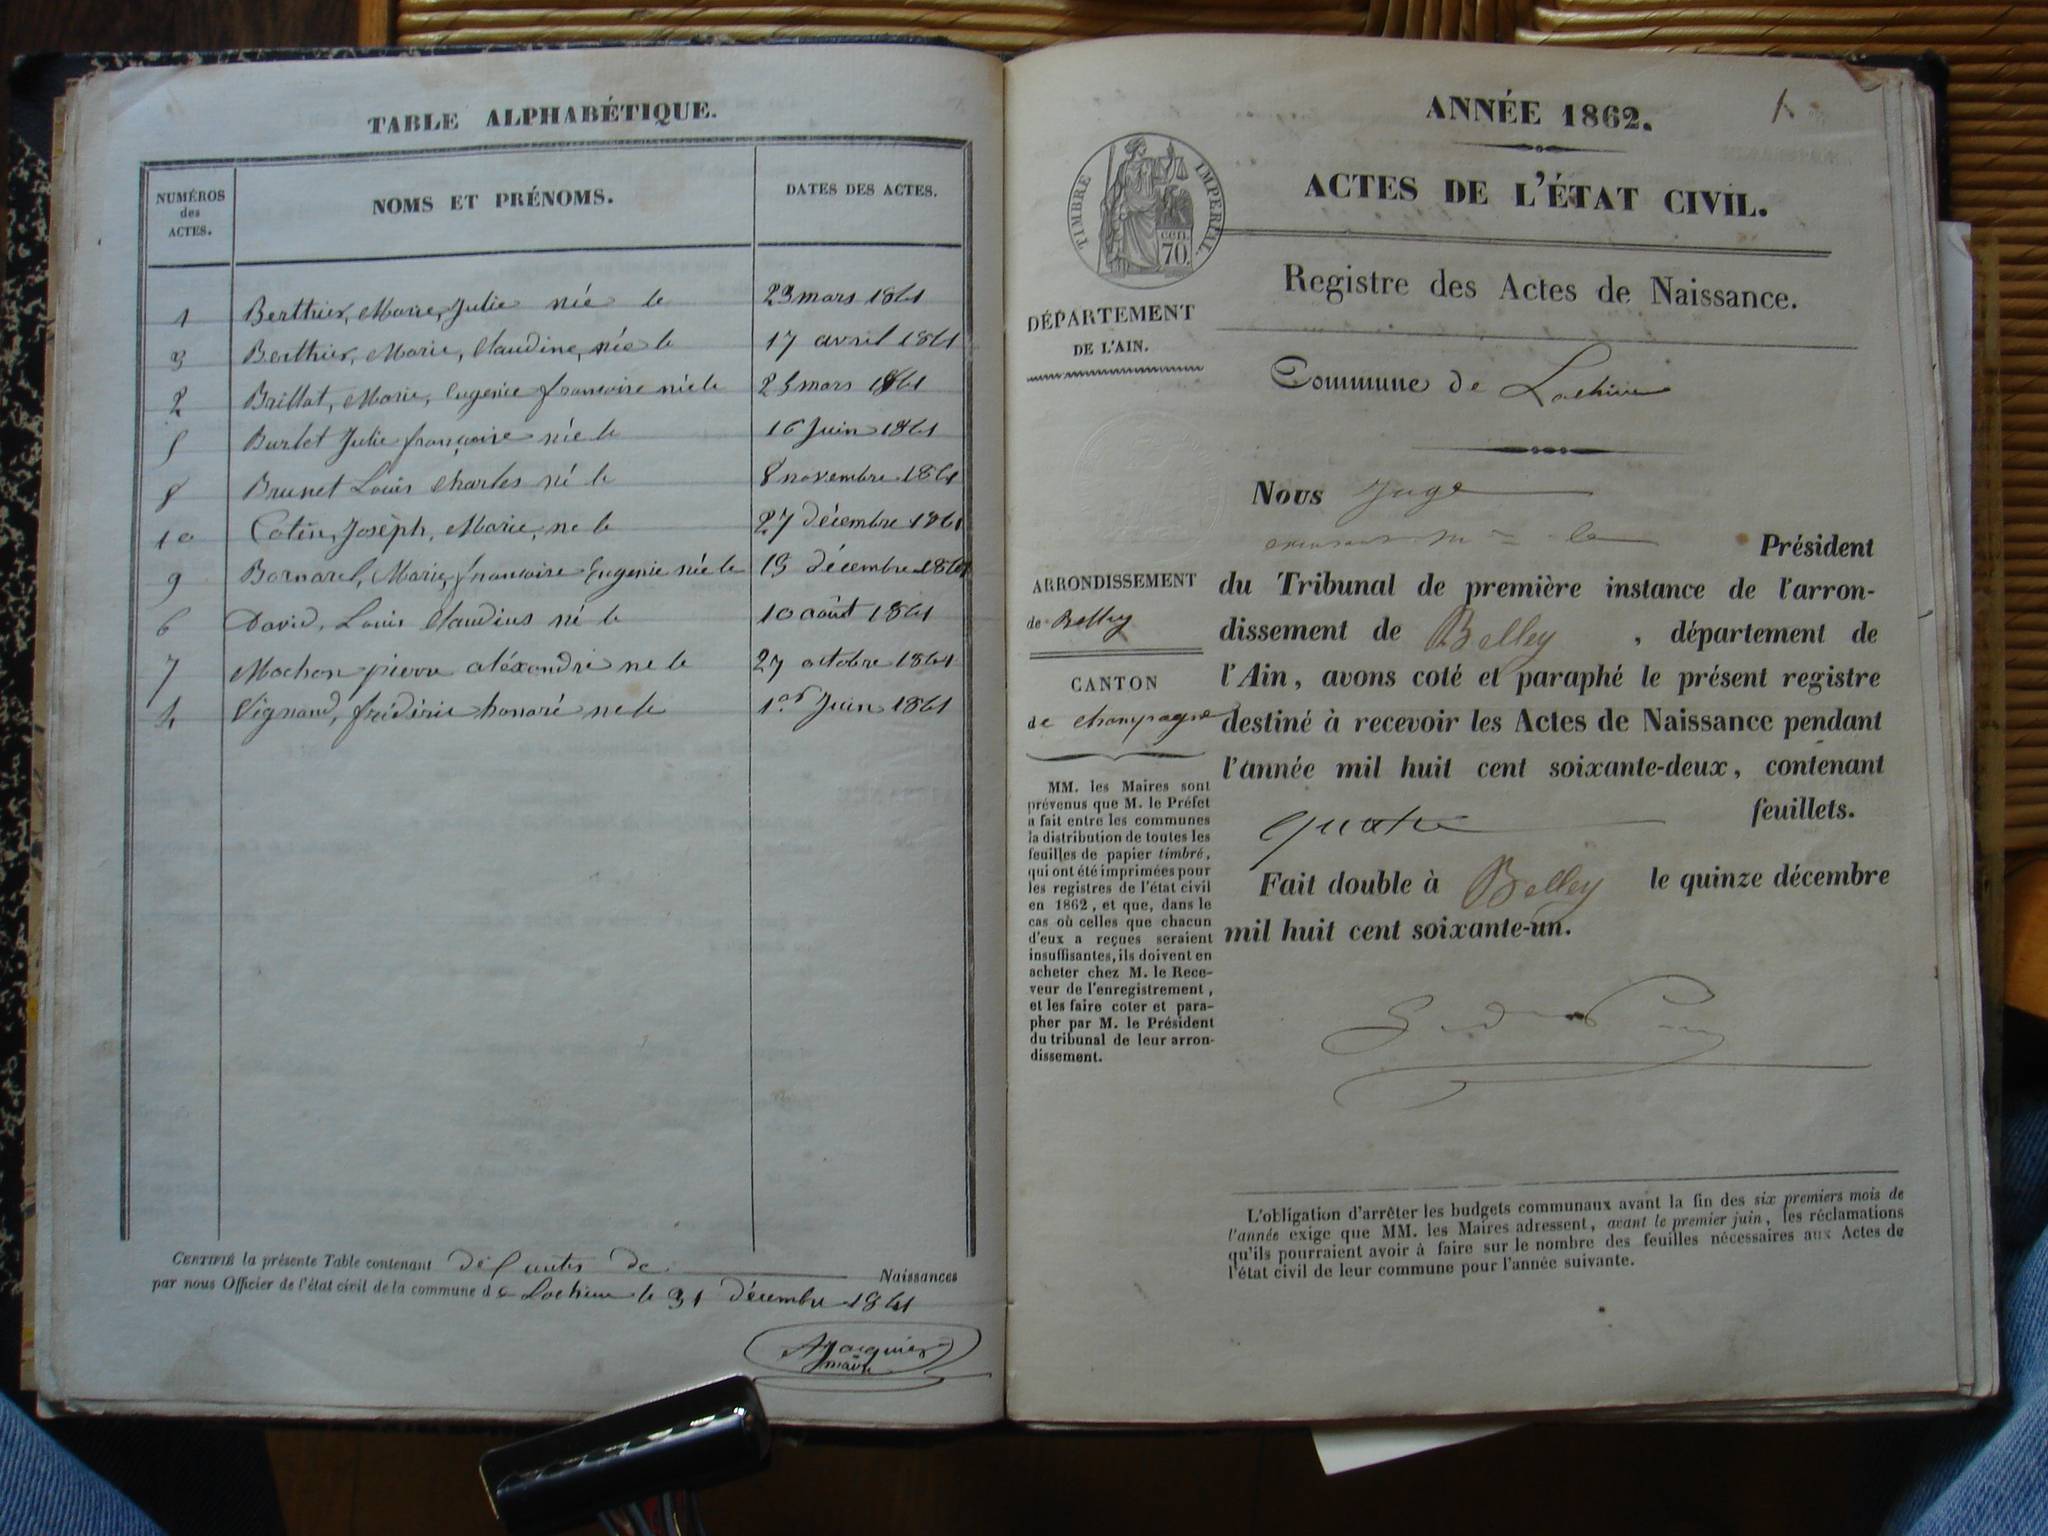 TABLE ALPHABÉTIQUE.
NUMÉROS des ACTES.
NOMS ET PRÉNOMS.
DATES DES ACTES.
1 Berthier, Marie, Julie née le 23 mars 1861
3 Berthier, Marie, Claudine, née le 17 avril 1861
2 Brillat, Marie, Eugenie françoise née le 25 mars 1861
5 Burlet Julie françoise née le 16 Juin 1861
8 Brunet Louis Charles né le 8 novembre 1861
10 Cotin, Josèph, Marie, ne le 27 décembre 1861
9 Bornarel, Marie, françoise Eugenie née le 13 décembre 1861
6 David, Louis Claudius né le 10 août 1861
7 Mochon pierre aléxandre ne le 27 octobre 1861
4 Vignand, frédéric honoré ne le 1er Juin 1861
CERTIFIÉ la présente Table contenant de Naissances
par nous Officier de l'état civil de la commune de Lochieu le 31 décembre 1861
AJacquier
maire
ANNÉE 1862.
1
ACTES DE L'ÉTAT CIVIL.
TIMBRE IMPERIAL
CEN. 70.
Registre des Actes de Naissance.
DÉPARTEMENT
DE L'AIN.
Commune de Lochieu
Nous Juge
Président
ARRONDISSEMENT
de Belley
CANTON
de Champagne
du Tribunal de première instance de l'arron-
dissement de Belley, département de
l'Ain, avons coté et paraphé le présent registre
destiné à recevoir les Actes de Naissance pendant
l'année mil huit cent soixante-deux, contenant
quatre feuillets.
Fait double à Belley le quinze décembre
mil huit cent soixante-un.
MM. les Maires sont
prévenus que M. le Préfet
a fait entre les communes
la distribution de toutes les
feuilles de papier timbré,
qui ont été imprimées pour
les registres de l'état civil
en 1862, et que, dans le
cas où celles que chacun
d'eux a reçues seraient
insuffisantes, ils doivent en
acheter chez M. le Rece-
veur de l'enregistrement,
et les faire coter et para-
pher par M. le Président
du tribunal de leur arron-
dissement.
L'obligation d'arrêter les budgets communaux avant la fin des six premiers mois de
l'année exige que MM. les Maires adressent, avant le premier juin, les réclamations
qu'ils pourraient avoir à faire sur le nombre des feuilles nécessaires aux Actes de
l'état civil de leur commune pour l'année suivante.